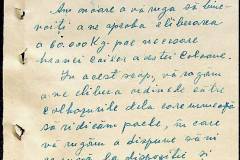 Am onoare a vă ruga să bine-
voiți a ne aproba eliberarea
a 60.000 Kg. paie necesare
hranei cailor acestei Coloane.
In acest scop, vă rugăm
a ne elibera ordinele către
Colhozurile dela care urmează
să ridicăm paele, în care
vă rugăm a dispune să ni
la dispoziție și